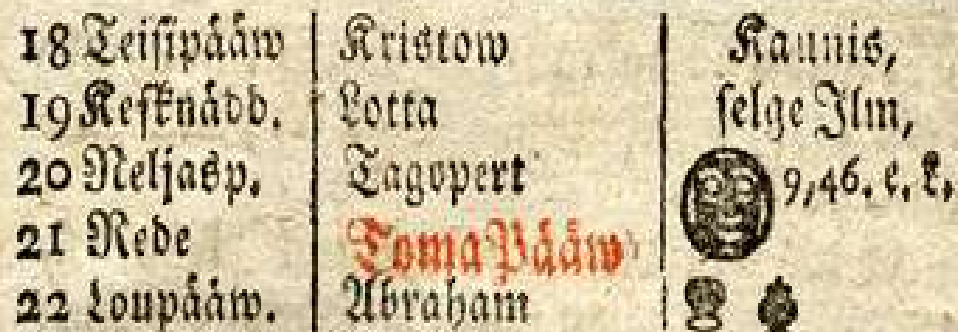 18 Teisipääw Kristow Kaunis,
19 Kesknädd. Lotta selge Ilm,
20 Neljasp. Tagopert 9,46. e. k.
21 Rede Toma Pääw
22 Loupääw. Abraham